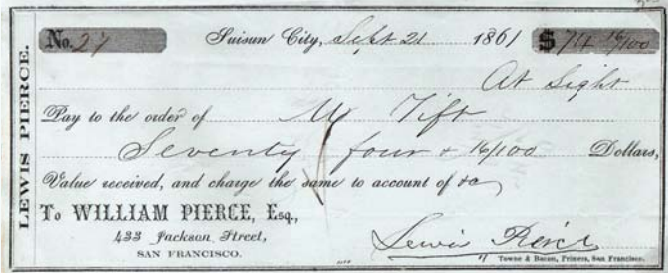 No. 27 Suisun City, Sept 21 1861 $74 16/100
At Sight
Pay to the order of M Tift
Seventy four & 16/100 Dollars,
Value received, and charge the same to account of &c
To WILLIAM PIERCE, Esq.,
433 Jackson Street,
SAN FRANCISCO.
Lewis Pierce
Towne & Bacon, Printers, San Francisco.
LEWIS PIERCE.